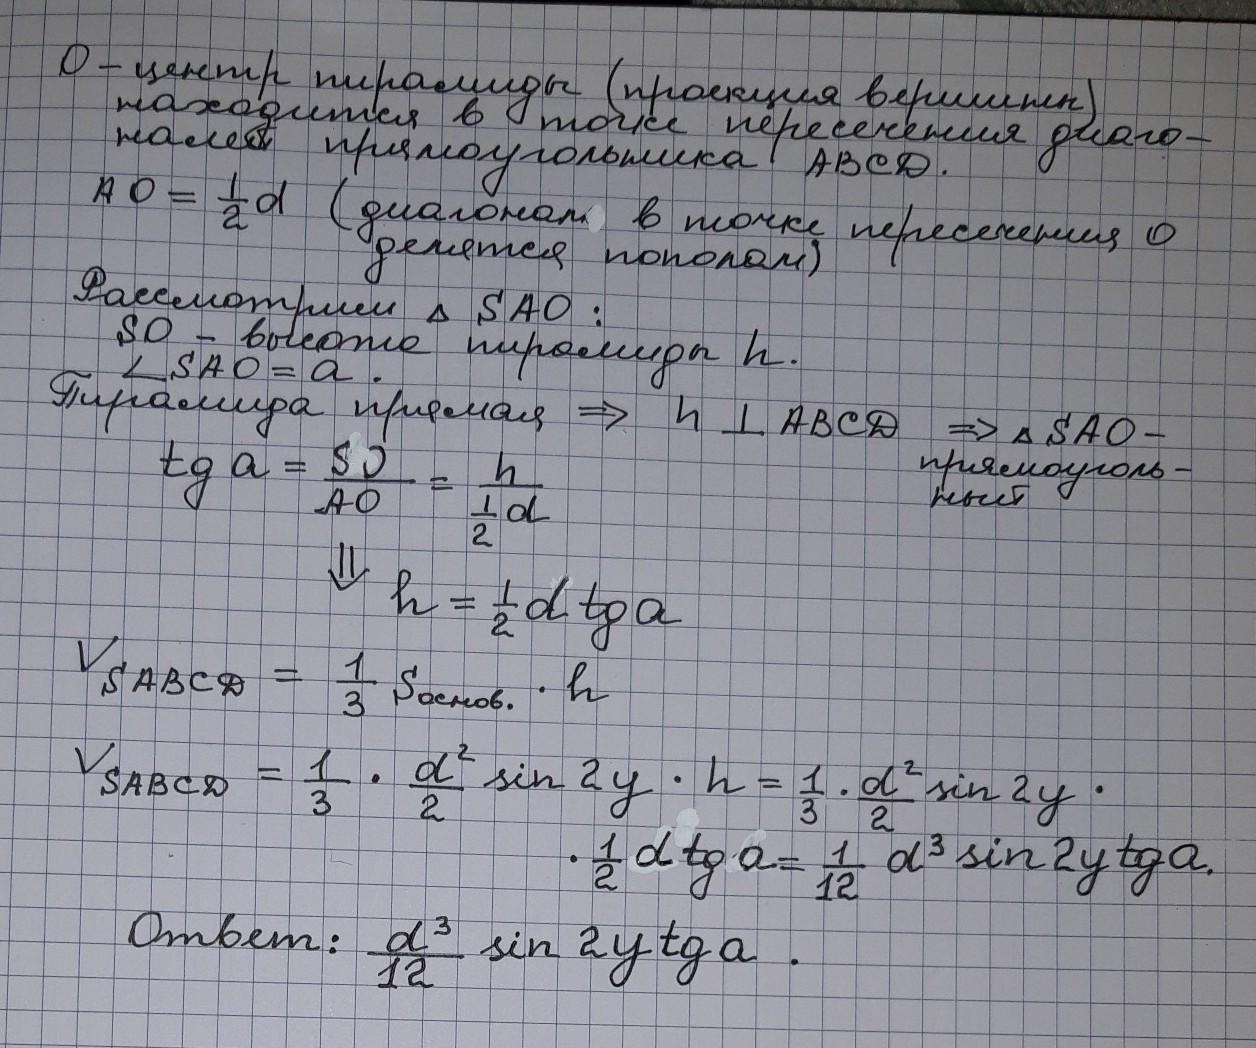 O - центр пирамиды (проекция вершины)
находится в точке пересечения диаго-
налей прямоугольника ABCD.
AO = 1/2 d (диагонали в точке пересечения O
делятся пополам)
Рассмотрим △ SAO:
SO - высота пирамиды h.
∠SAO = a.
Пирамида прямая ⇒ h ⊥ ABCD ⇒ △ SAO -
прямоуголь-
ный
tg a = SO/AO = h/(1/2 d)
⇓
h = 1/2 d tg a
V SABCD = 1/3 S основ. · h
V SABCD = 1/3 · d²/2 sin 2y · h = 1/3 · d²/2 sin 2y ·
· 1/2 d tg a = 1/12 d³ sin 2y tg a.
Ответ: d³/12 sin 2y tg a.